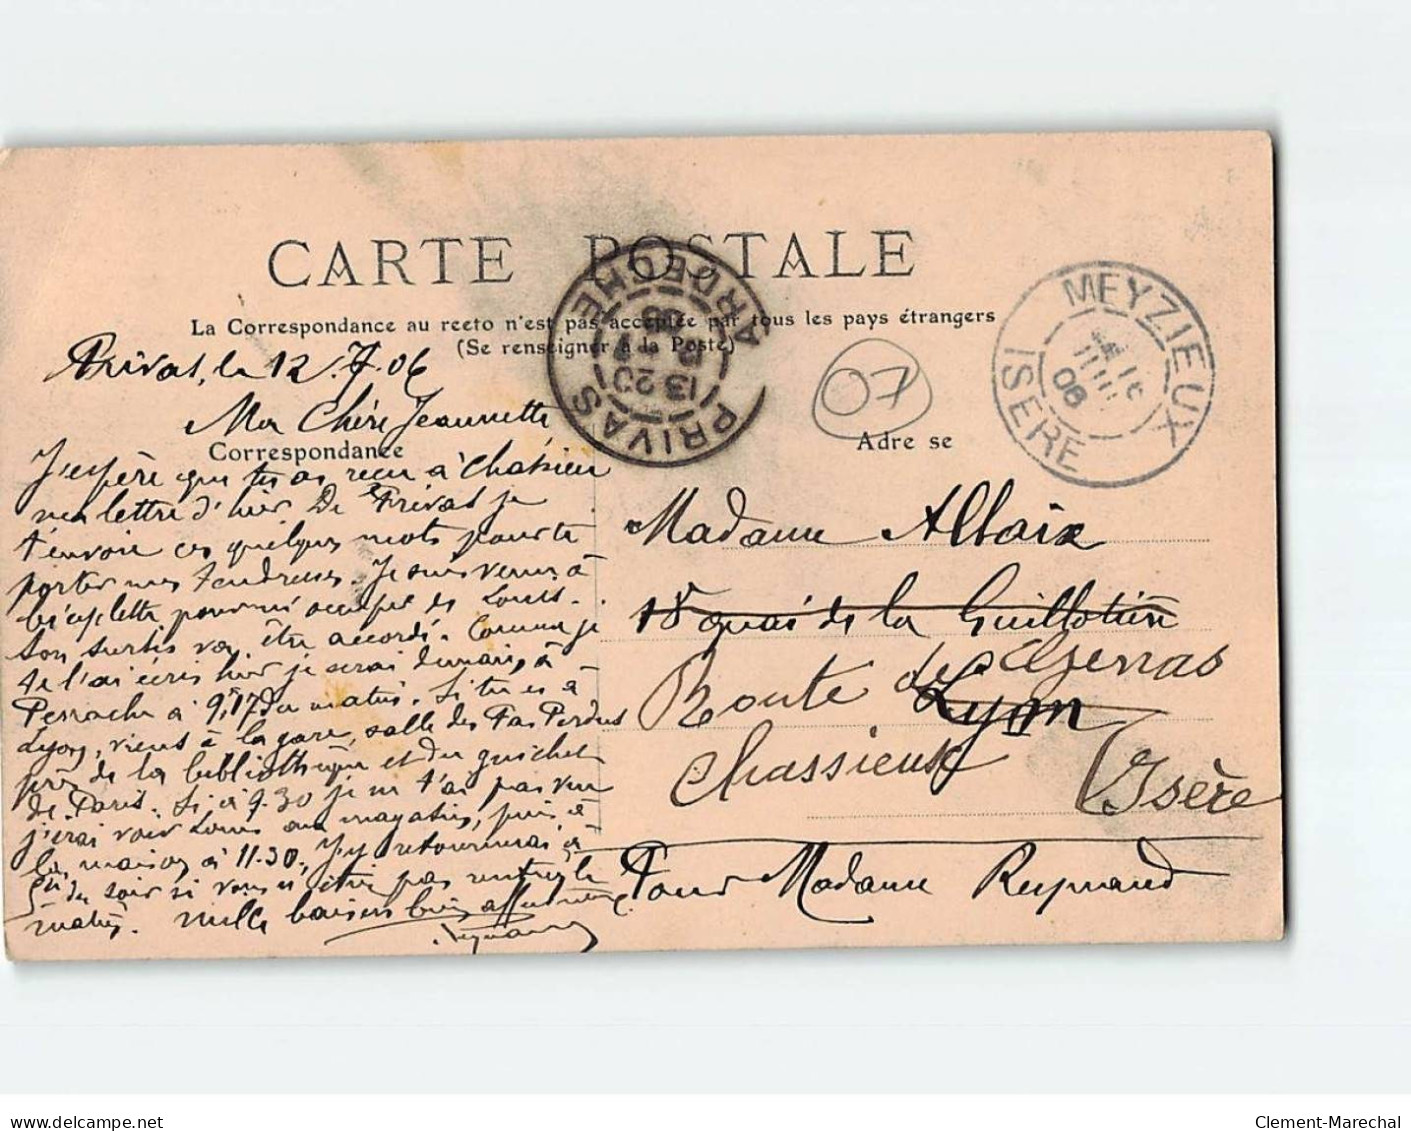 CARTE POSTALE
La Correspondance au recto n'est pas acceptée par tous les pays étrangers
(Se renseigner à la Poste)
PRIVAS ARDECHE
13 20
MEYZIEUX
ISERE
06
07
Privas, le 12.7.06
Ma Chère Jeannette
Correspondance
Adre se
J'espère que tu as reçu à Chassieu
ma lettre d'hier De Privas je
t'envoie ces quelques mots pour te
porter mes tendresses. Je suis venu à
bicyclette pour m'occuper de Louis.
Son sursis va être accordé. Comme je
te l'ai écris hier je serai demain, à
Perrache à 9,17 du matin. Si tu es à
Lyon, viens à la gare, salle des Pas Perdus
près de la bibliothèque et du guichet
de Paris. Si à 9.30 je ne t'ai pas vue
j'irai voir Louis au magasin, puis à
la maison à 11.30. J'y retournerai à
5h du soir si vous n'étiez pas rentrés le
matin. Mille baisers bien affectueux.
Madame Allaix
18 quai de la Guillotière
Lyon
Route de Genas
Chassieux
Isère
Pour Madame Reymand
delcampe.net
Clement-Marechal